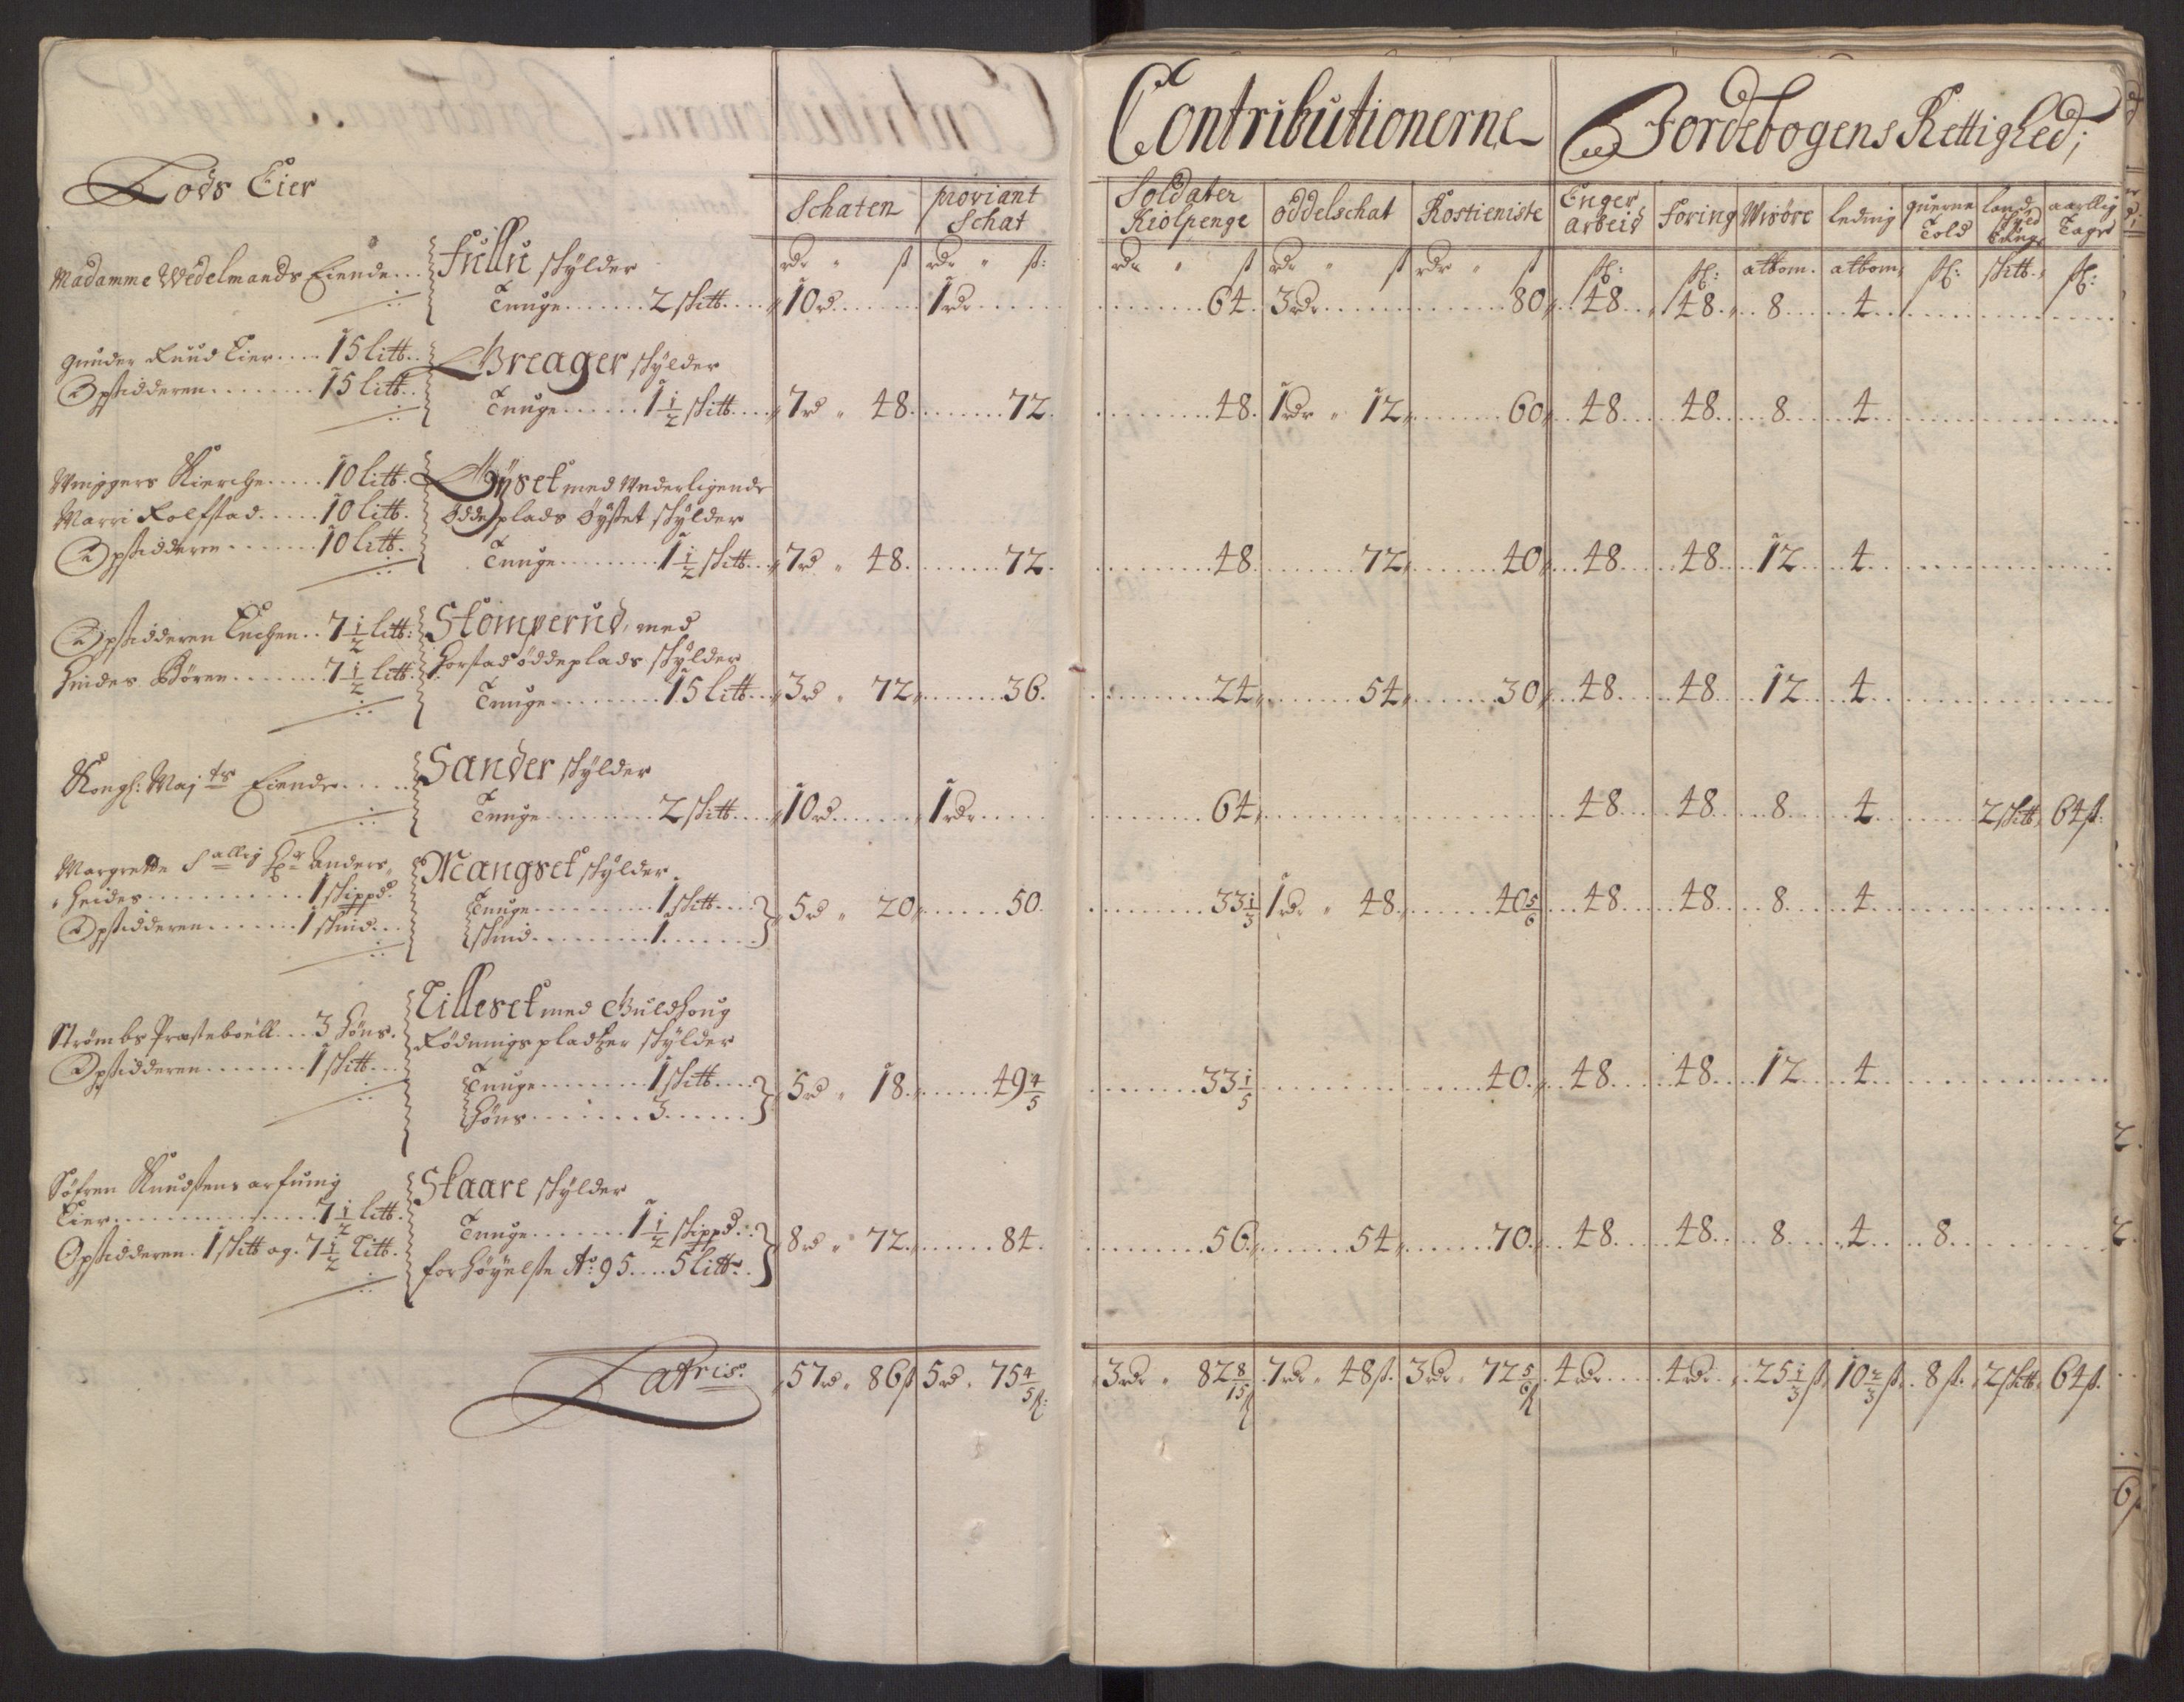 Contributionerne
Jordebogens Rettighed;
Lods Eier
Schaten
proviant Schat
Soldater Kiolpenge
oddelschat
Rostieniste
Enger arbeid
Foring
Wisöre
leding
querne Told
land skyld
aarllig Tage
rdr " ß
rdr " ß:
rdr " ß
rdr " ß
rdr " ß
ß:
ß:
attom.
attom.
ß:
skitt.
ß:
Madamme Wedelmands Eiende...
Fullu skylder
Tunge.......2 skitt.... 10 rd........ 1 rdr...... 64. 3 rdr........ 80 48 48 8 4
Gunder Ruud Eier.... 15 litt..
Opsidderen........15 litt..
Breager skylder
Tunge......1 1/2 skitt.... 7 rd " 48........72. 48. 1 rdr " 12 60 48 48 8 4
Kierche.....10 litt.
Marri Rolfstad.....10 litt.
Opsidderen.......10 litt.
Øyset med Underligende
Ødde plads Øystet skylder
Tunge........1 1/2 skitt... 7 rd " 48........72. 48 72 40 48 48 12 4
Opsidderen Enchen.. 7 1/2 litt:
Hindes Børen.......7 1/2 litt.
Stomperud, med
Horstad øddeplads skylder
Tunge.........15 litt... 3 rd " 72 36. 24 54 30 48 48 12 4
Kongl: Maj ts Eiende.....
Sander skylder
Tunge.........2 skitt.... 10 rd....... 1 rdr..... 64 48 48 8 4 2 skitt 64 ß:
Margrette S allig Hr Anders
Heides...........1 skippd
Opsidderen.......1 skind...
Mangset skylder
Tunge.........1 skitt....
skind.........1.......
5 rd " 20 50. 33 1/3 1 rdr " 48 40 5/6 48 48 8 4
Strømbs Præsteboell... 3 Høns.
Opsidderen........1 skitt...
Tilleset med Guldhoug
Rødnings pladtzer skylder
Tunge........1 skitt....
Høns.........3......
5 rd " 18 49 4/5 33 1/5 40. 48 48 12 4
Söfren Knudsens arfuing
Eier................7 1/2 litt.
Opsidderen. 1 skitt og. 7 1/2 litt.
Staare skylder
Tunge.......1 1/2 skippd..
forhøyelse Ao: 95....5 litt..
8 rd " 72 84. 56 54 70. 48 48 8 4 8
Latris: 57 rd " 86 ß 5 rd " 75 4/5 ß: 3 rdr " 82 8/15 ß 7 rdr " 48 ß. 3 rdr " 72 5/6 ß 4 rdr. 4 rdr. 25 1/3 ß 10 2/3 ß 8 ß. 2 skitt 64 ß.